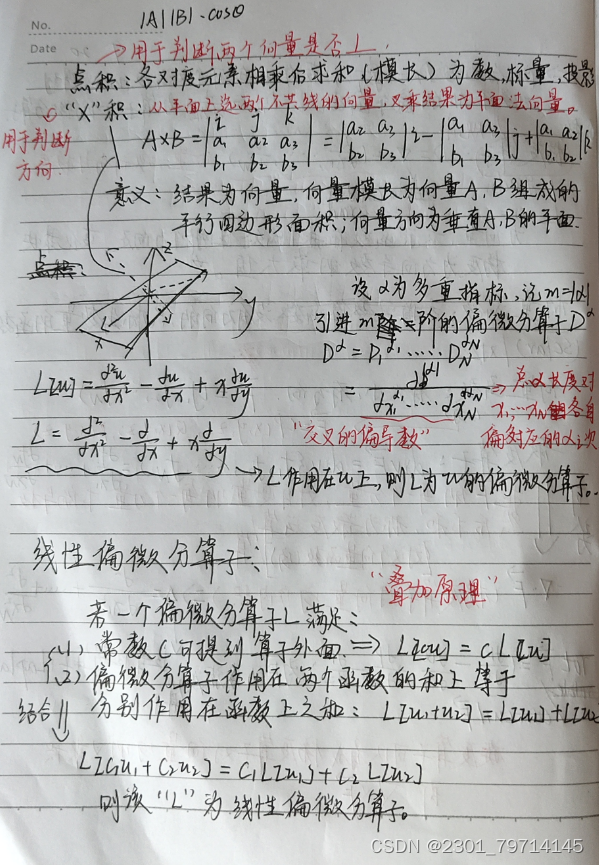 No.
Date
|A||B|·cosθ
→用于判断两个向量是否⊥
点积：各对应元素相乘后求和（模长）为数，标量，投影
"X"积：从平面上选两个不共线的向量，叉乘结果为平面法向量。
用于判断方向
A×B = |i j k; a1 a2 a3; b1 b2 b3| = |a2 a3; b2 b3| i - |a1 a3; b1 b3| j + |a1 a2; b1 b2| k
意义：结果为向量，向量模长为向量A，B组成的
平行四边形面积；向量方向为垂直A，B的平面
点积：
z
y
x
设α为多重指标，记m=|α|
引进m阶的偏微分算子D^α
D^α = D_1^α1 ...... D_N^αN
= d^|α| / dx_1^α1 ...... dx_N^αN
"交叉的偏导数"
L[u] = d²u/dx² - du/dx + x du/dy
L = d²/dx² - d/dx + x d/dy
→L作用在u上，则L为u的偏微分算子。
线性偏微分算子：
"叠加原理"
若一个偏微分算子L满足：
(1) 常数C可提到算子外面 ⟹ L[cu] = c L[u]
(2) 偏微分算子作用在两个函数的和上等于
分别作用在函数上之和：L[u1+u2] = L[u1] + L[u2
结合⇓
L[c1u1 + c2u2] = c1 L[u1] + c2 L[u2]
则该"L"为线性偏微分算子。
CSDN @2301_79714145